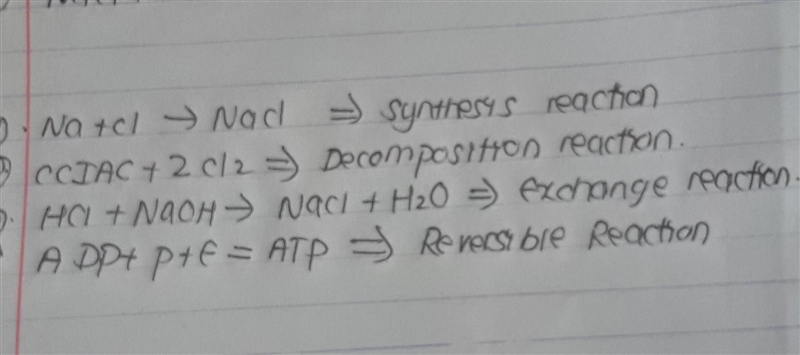 Na + Cl → NaCl ⇒ synthesys reaction
CCIAC + 2 Cl2 ⇒ Decomposition reaction.
HCl + NaOH → NaCl + H2O ⇒ exchange reaction.
ADP + P + E = ATP ⇒ Reversible Reaction